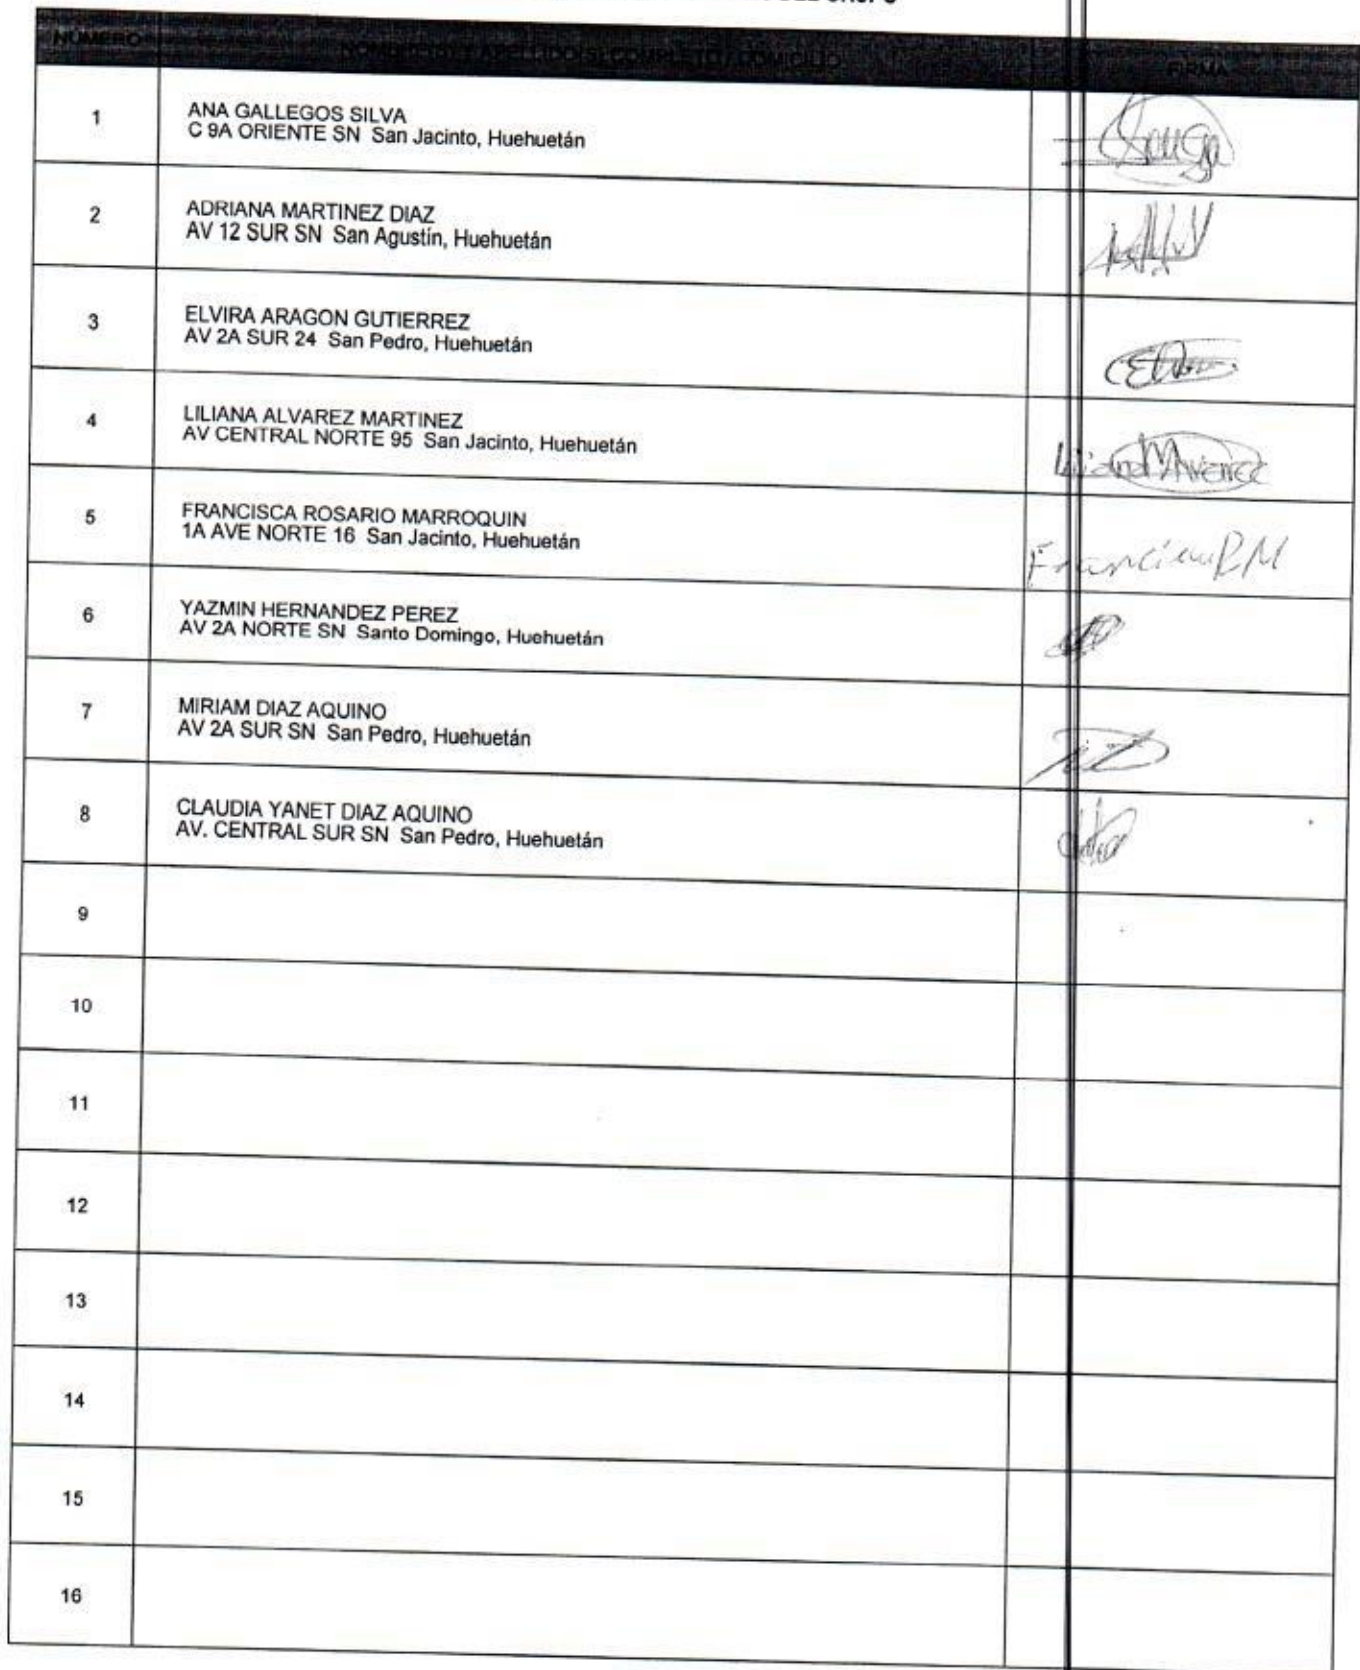 DEL GRUPO
NUMERO NOMBRE(S) Y APELLIDO(S) COMPLETO / DOMICILIO FIRMA
1 ANA GALLEGOS SILVA
C 9A ORIENTE SN San Jacinto, Huehuetán
2 ADRIANA MARTINEZ DIAZ
AV 12 SUR SN San Agustín, Huehuetán
3 ELVIRA ARAGON GUTIERREZ
AV 2A SUR 24 San Pedro, Huehuetán
4 LILIANA ALVAREZ MARTINEZ
AV CENTRAL NORTE 95 San Jacinto, Huehuetán
5 FRANCISCA ROSARIO MARROQUIN
1A AVE NORTE 16 San Jacinto, Huehuetán
6 YAZMIN HERNANDEZ PEREZ
AV 2A NORTE SN Santo Domingo, Huehuetán
7 MIRIAM DIAZ AQUINO
AV 2A SUR SN San Pedro, Huehuetán
8 CLAUDIA YANET DIAZ AQUINO
AV. CENTRAL SUR SN San Pedro, Huehuetán
9
10
11
12
13
14
15
16